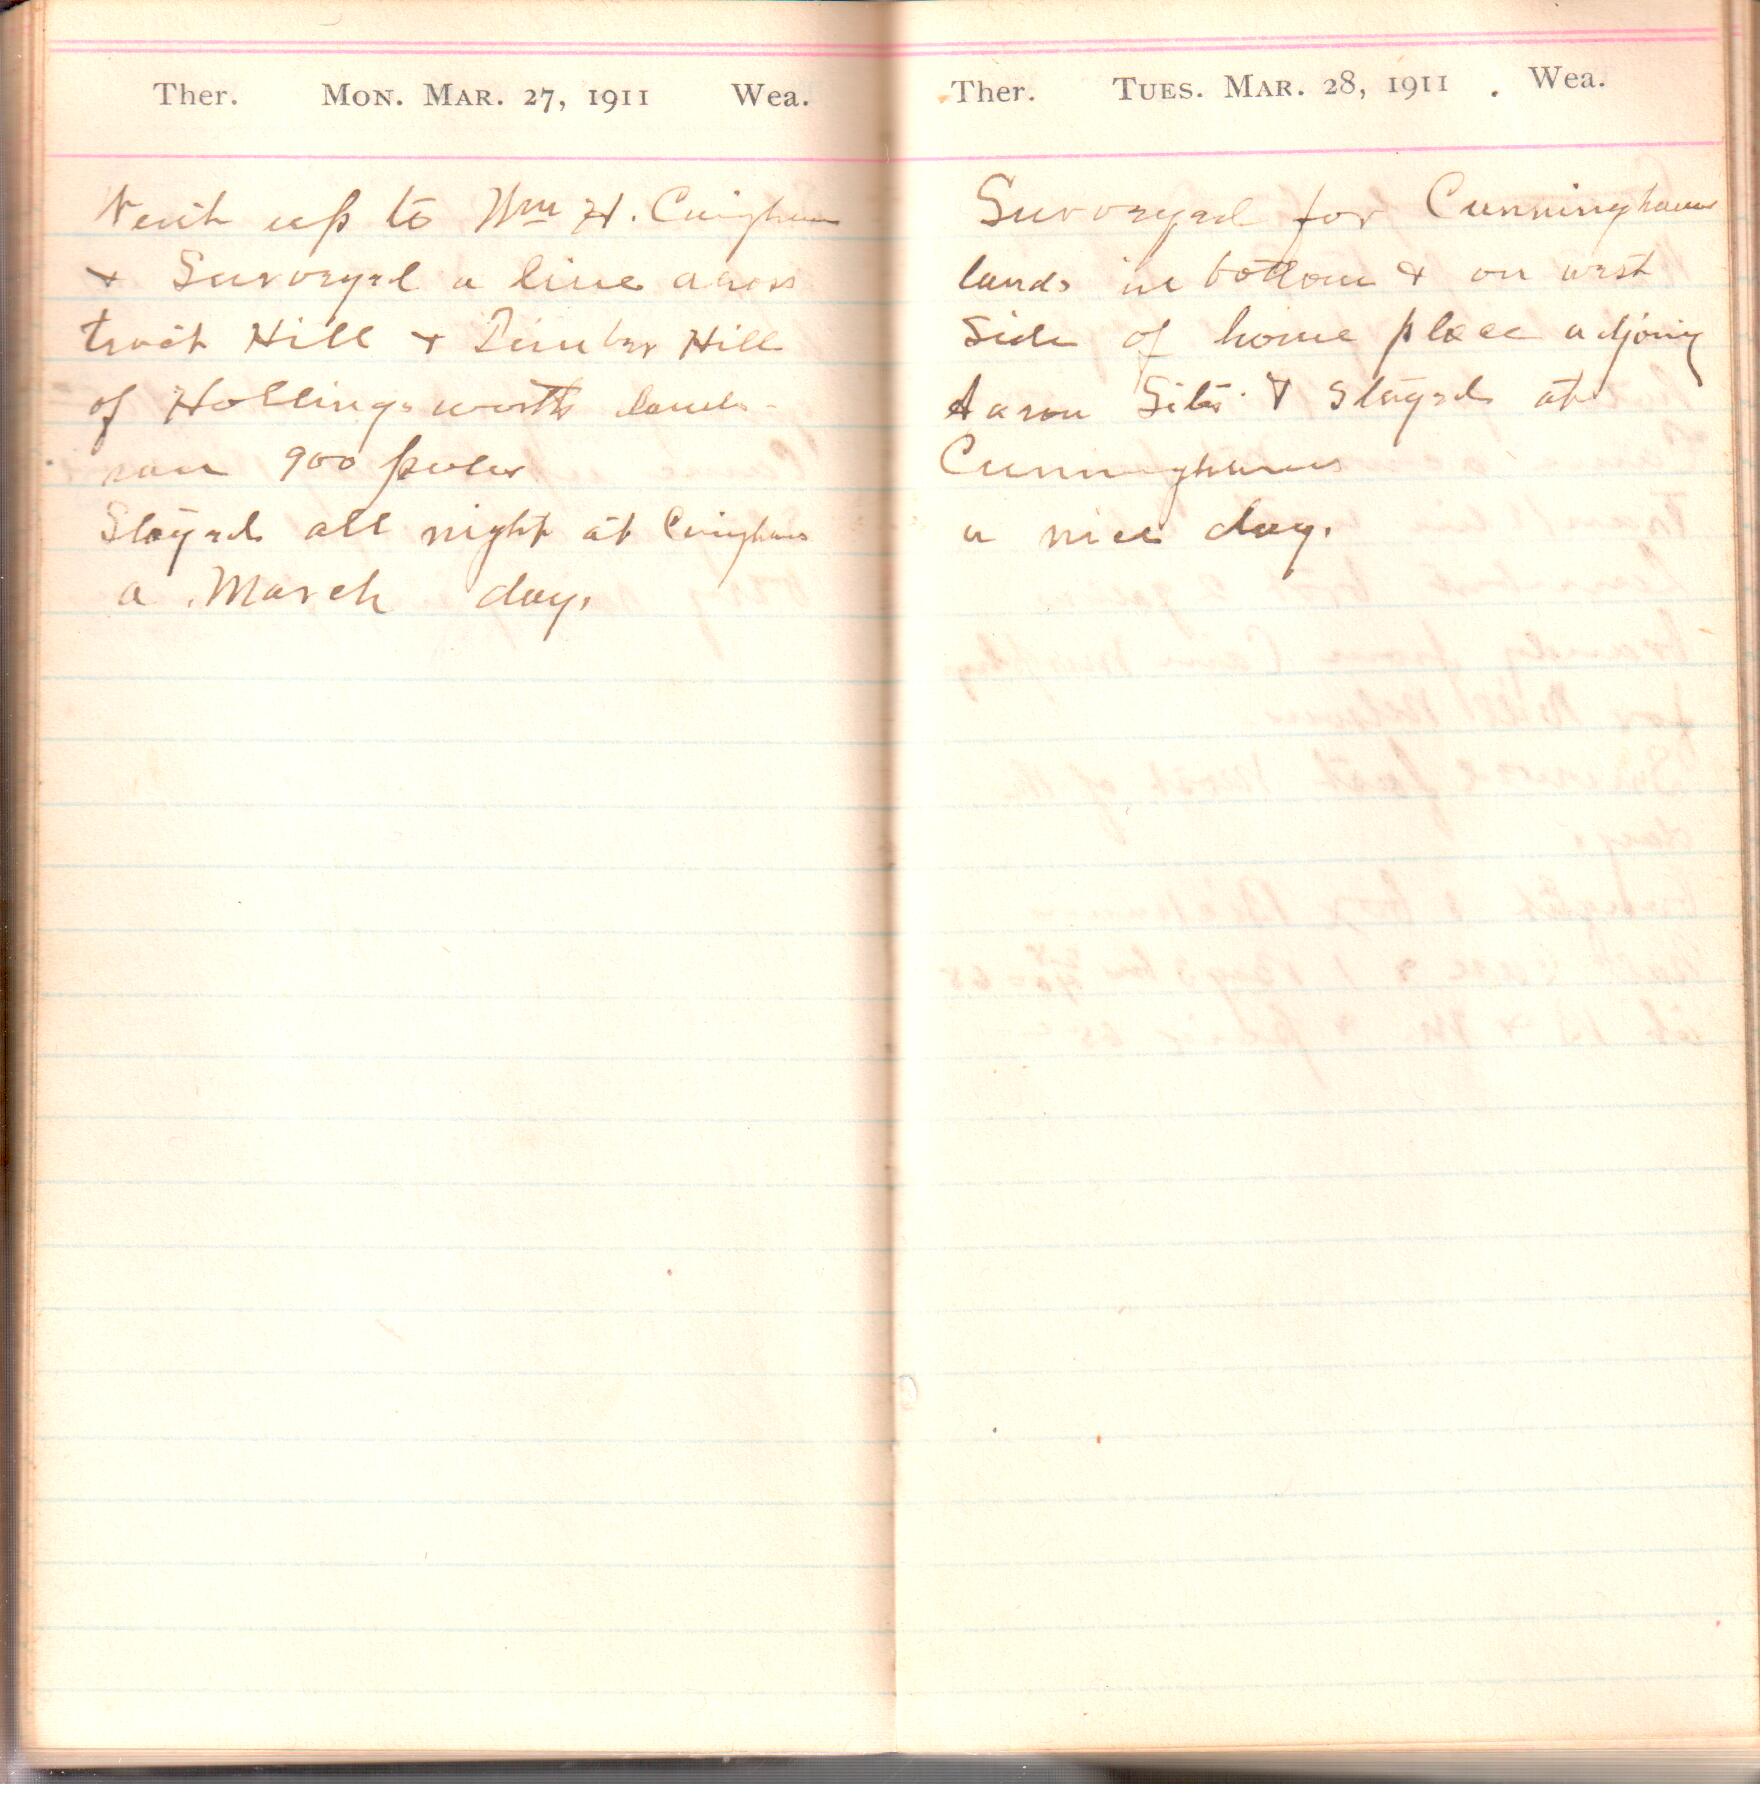 Ther. MON. MAR. 27, 1911 Wea.
Went up to Wm H. Cuningham
& Surveyed a line across
Hill & Timber Hill
of Hollingsworth lands
ran 900 poles
Stayed all night at Cuninghams
a March day.
Ther. TUES. MAR. 28, 1911 Wea.
Surveyed for Cunningham
lands in bottom & on west
side of home place adjoing
Aaron Sites & Stayed at
Cunninghams
a nice day.